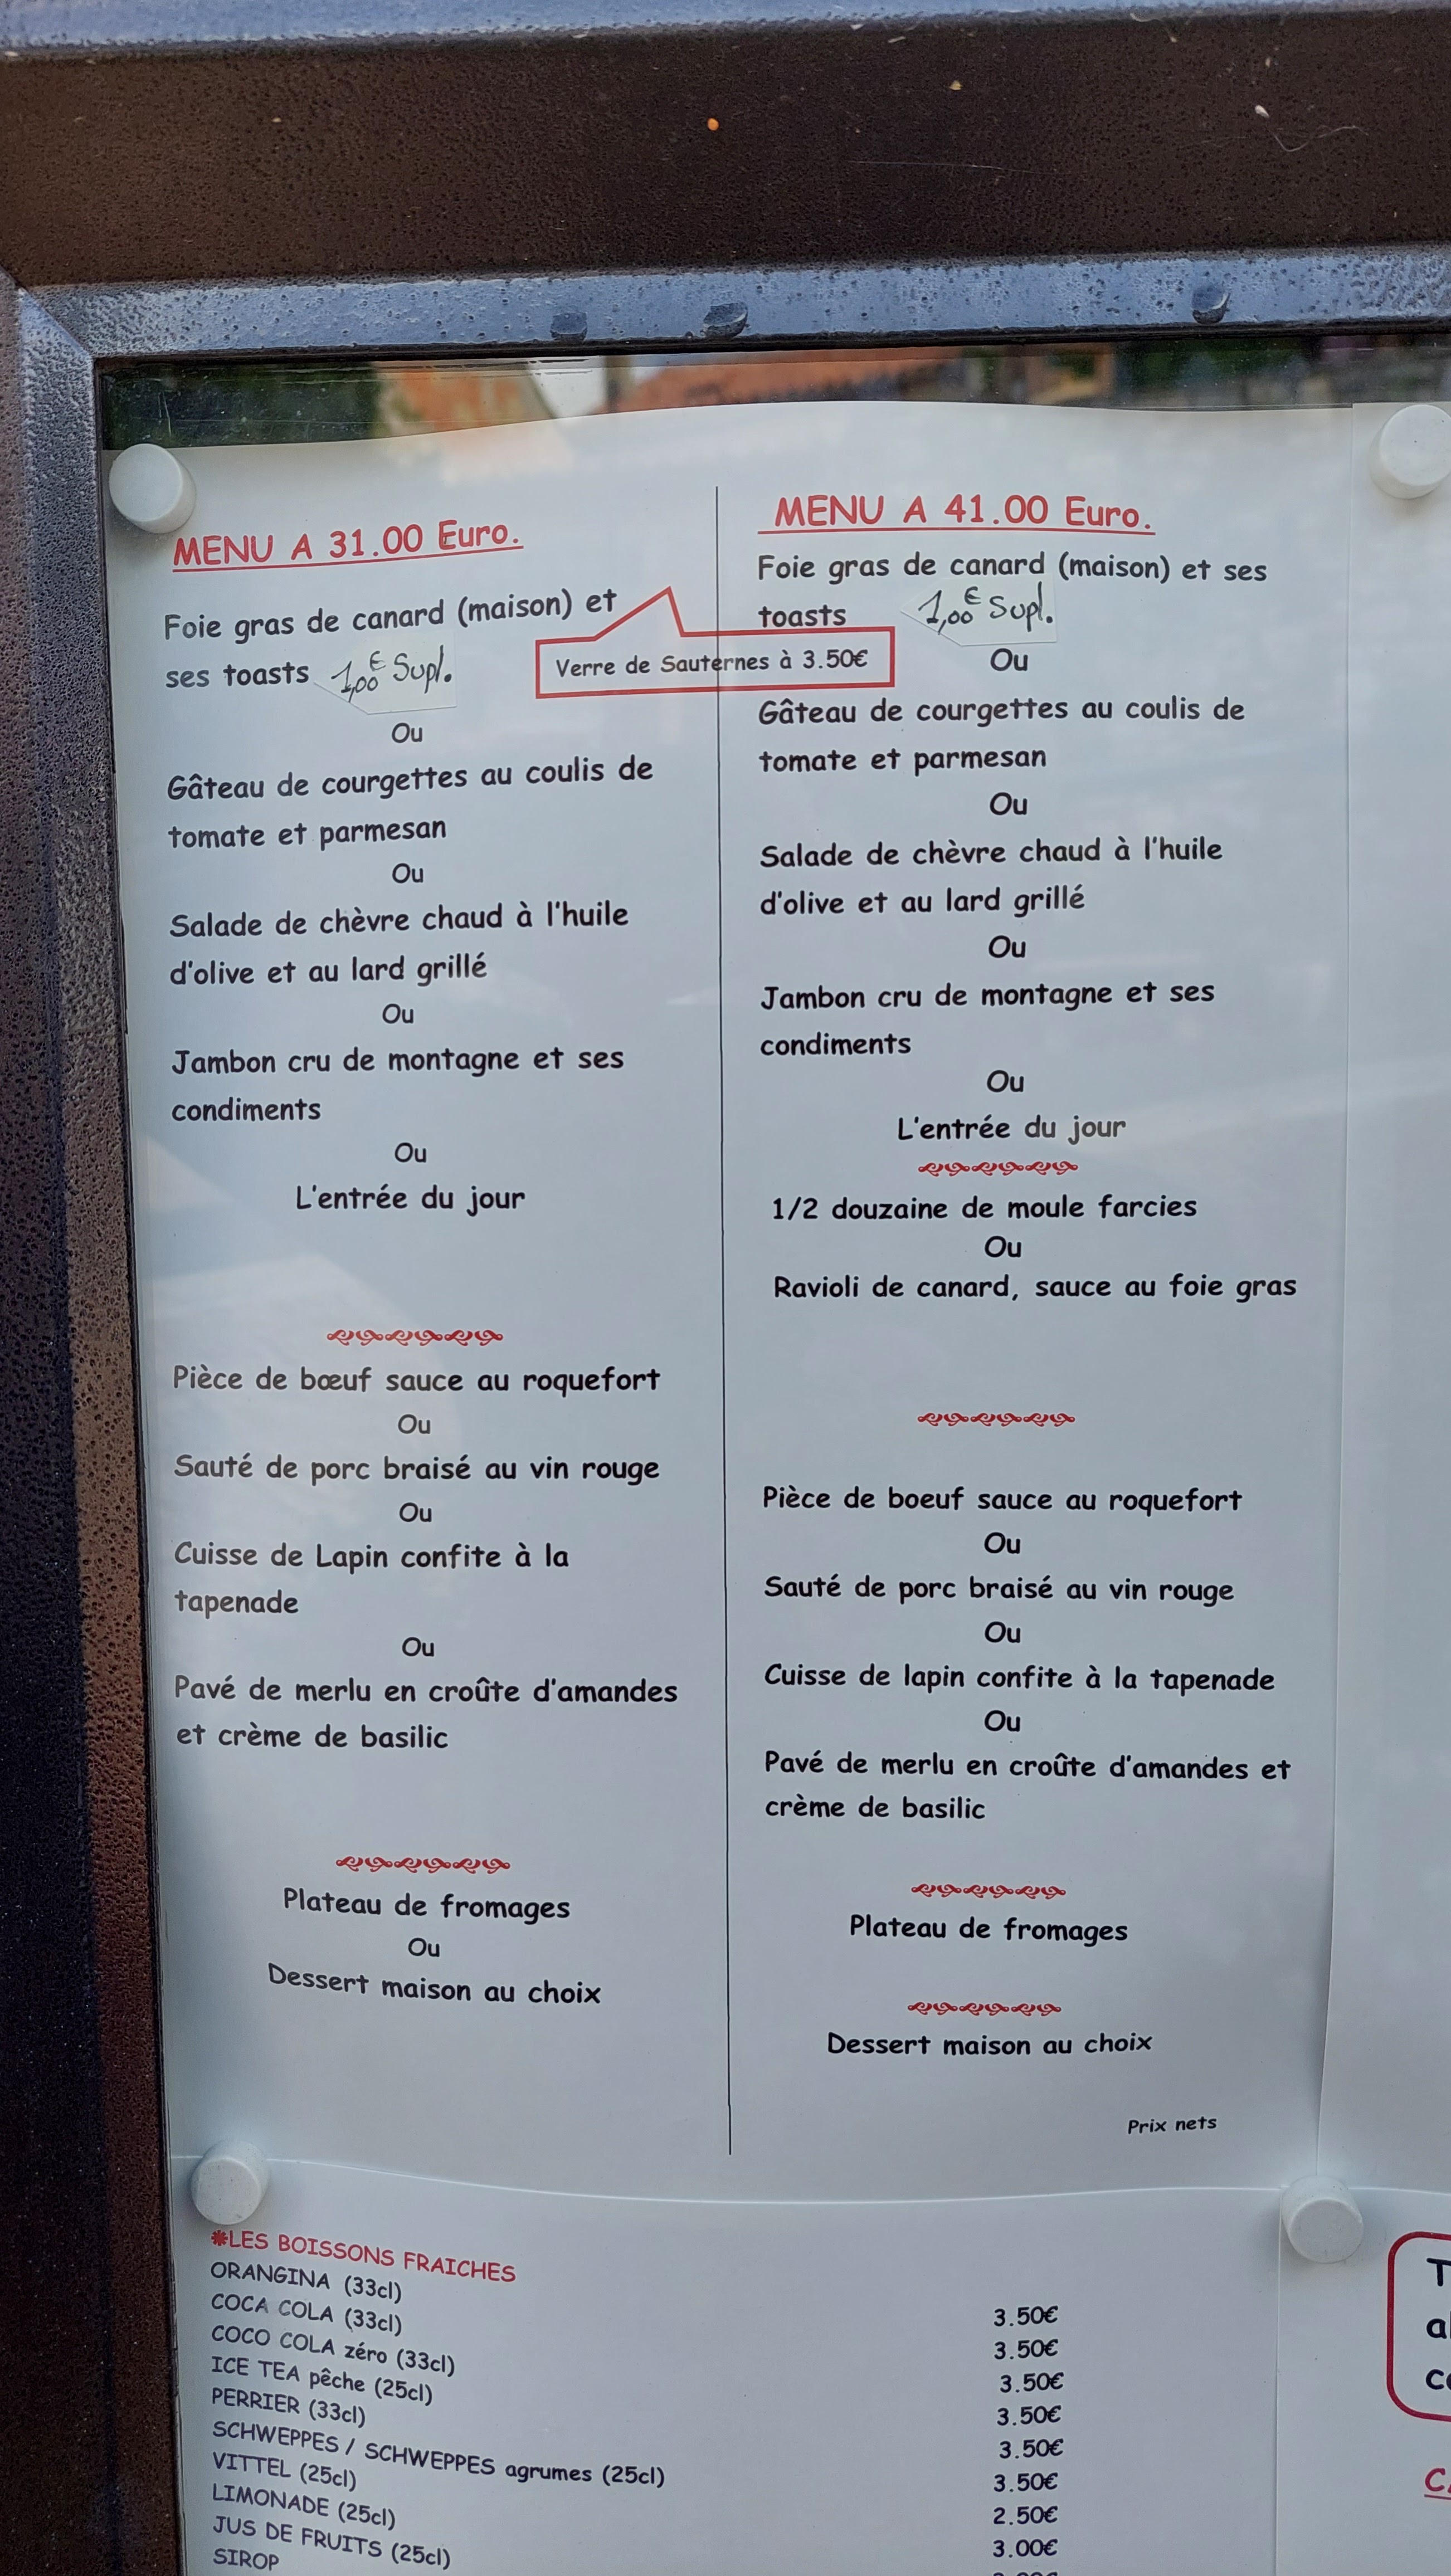 MENU A 31.00 Euro.
Foie gras de canard (maison) et
ses toasts 1,00€ Supl.
Verre de Sauternes à 3.50€
Ou
Gâteau de courgettes au coulis de
tomate et parmesan
Ou
Salade de chèvre chaud à l'huile
d'olive et au lard grillé
Ou
Jambon cru de montagne et ses
condiments
Ou
L'entrée du jour
Pièce de bœuf sauce au roquefort
Ou
Sauté de porc braisé au vin rouge
Ou
Cuisse de Lapin confite à la
tapenade
Ou
Pavé de merlu en croûte d'amandes
et crème de basilic
Plateau de fromages
Ou
Dessert maison au choix
MENU A 41.00 Euro.
Foie gras de canard (maison) et ses
toasts 1,00€ Supl.
Ou
Gâteau de courgettes au coulis de
tomate et parmesan
Ou
Salade de chèvre chaud à l'huile
d'olive et au lard grillé
Ou
Jambon cru de montagne et ses
condiments
Ou
L'entrée du jour
1/2 douzaine de moule farcies
Ou
Ravioli de canard, sauce au foie gras
Pièce de boeuf sauce au roquefort
Ou
Sauté de porc braisé au vin rouge
Ou
Cuisse de lapin confite à la tapenade
Ou
Pavé de merlu en croûte d'amandes et
crème de basilic
Plateau de fromages
Dessert maison au choix
Prix nets
LES BOISSONS FRAICHES
ORANGINA (33cl) 3.50€
COCA COLA (33cl) 3.50€
COCO COLA zéro (33cl) 3.50€
ICE TEA pêche (25cl) 3.50€
PERRIER (33cl) 3.50€
SCHWEPPES / SCHWEPPES agrumes (25cl) 3.50€
VITTEL (25cl) 2.50€
LIMONADE (25cl) 3.00€
JUS DE FRUITS (25cl)
SIROP